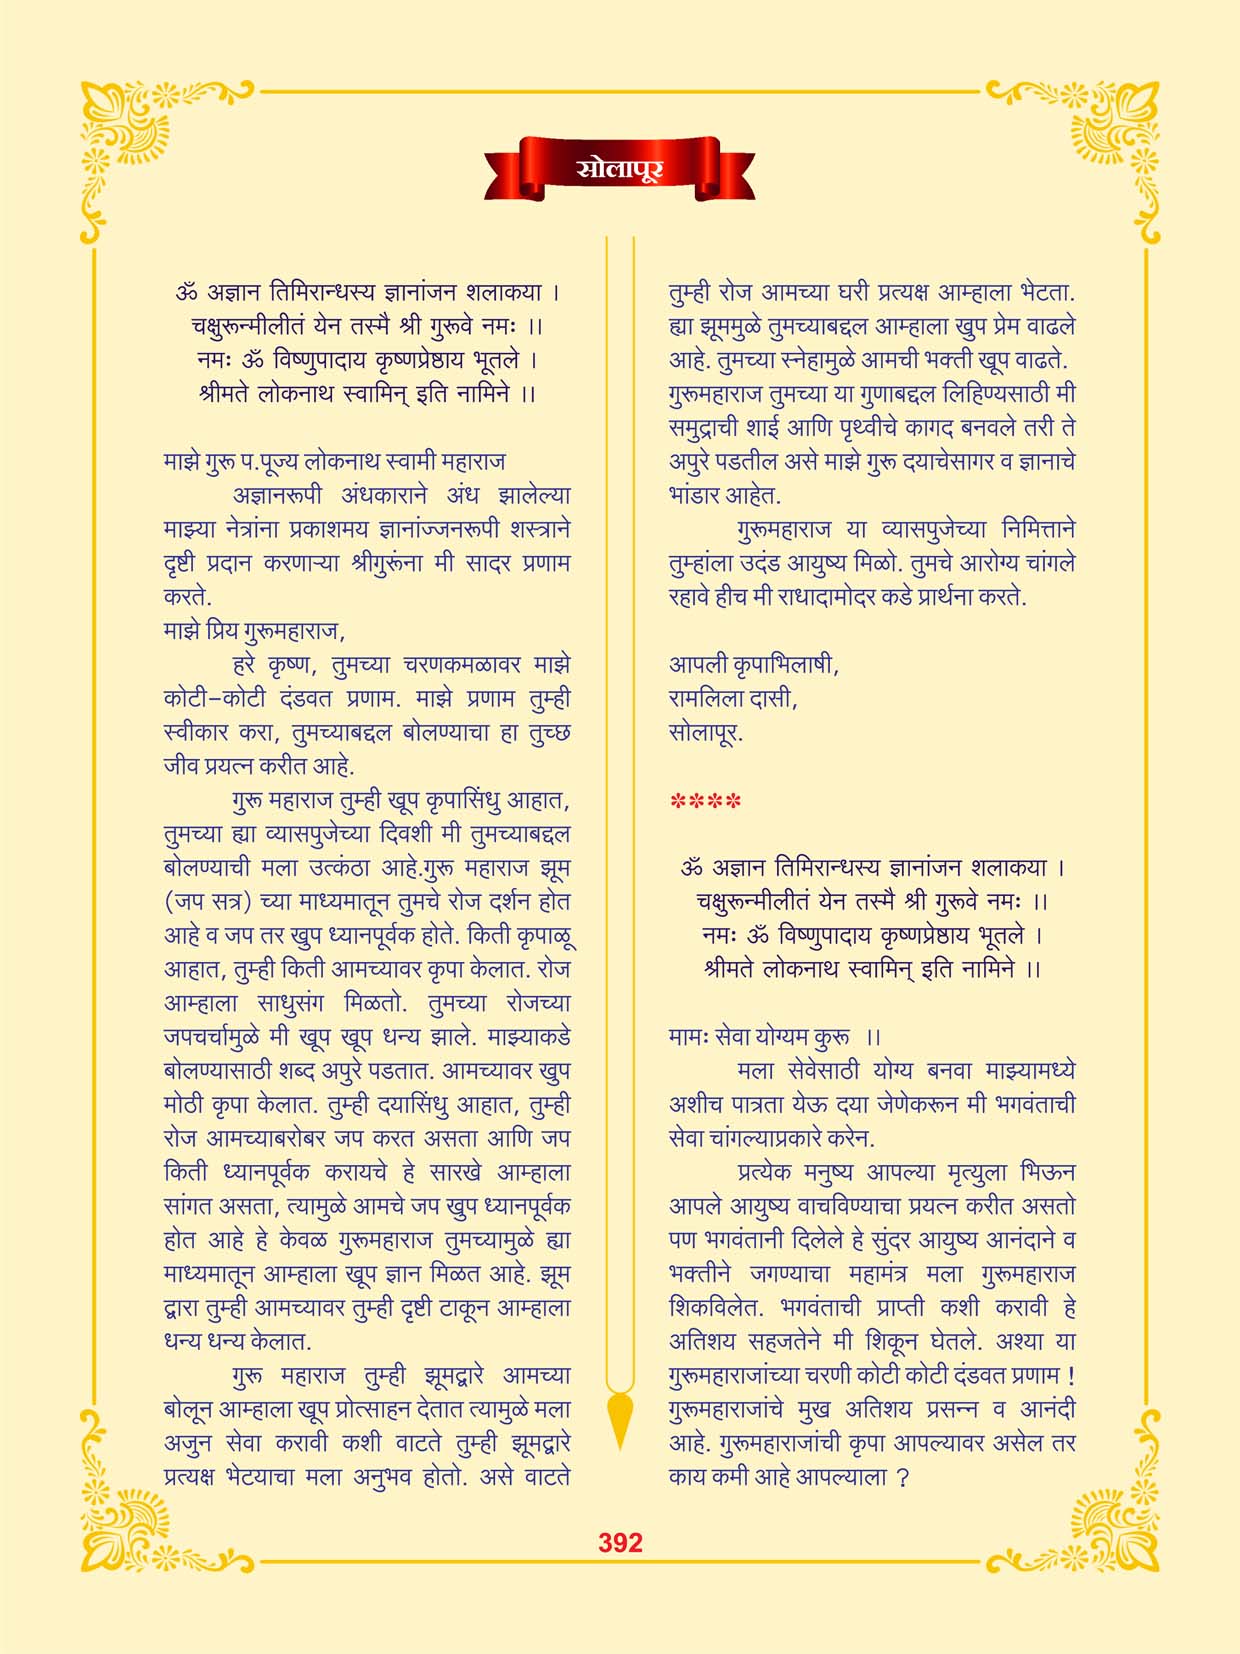 सोलापूर
ॐ अज्ञान तिमिरान्धस्य ज्ञानांजन शलाकया ।
चक्षुरून्मीलीतं येन तस्मै श्री गुरूवे नमः ।।
नमः ॐ विष्णुपादाय कृष्णप्रेष्ठाय भूतले ।
श्रीमते लोकनाथ स्वामिन् इति नामिने ।।
माझे गुरू प.पूज्य लोकनाथ स्वामी महाराज
अज्ञानरूपी अंधकाराने अंध झालेल्या
माझ्या नेत्रांना प्रकाशमय ज्ञानांज्जनरूपी शस्त्राने
दृष्टी प्रदान करणाऱ्या श्रीगुरूंना मी सादर प्रणाम
करते.
माझे प्रिय गुरूमहाराज,
हरे कृष्ण, तुमच्या चरणकमळावर माझे
कोटी-कोटी दंडवत प्रणाम. माझे प्रणाम तुम्ही
स्वीकार करा, तुमच्याबद्दल बोलण्याचा हा तुच्छ
जीव प्रयत्न करीत आहे.
गुरू महाराज तुम्ही खूप कृपासिंधु आहात,
तुमच्या ह्या व्यासपुजेच्या दिवशी मी तुमच्याबद्दल
बोलण्याची मला उत्कंठा आहे.गुरू महाराज झूम
(जप सत्र) च्या माध्यमातून तुमचे रोज दर्शन होत
आहे व जप तर खुप ध्यानपूर्वक होते. किती कृपाळू
आहात, तुम्ही किती आमच्यावर कृपा केलात. रोज
आम्हाला साधुसंग मिळतो. तुमच्या रोजच्या
जपचर्चामुळे मी खूप खूप धन्य झाले. माझ्याकडे
बोलण्यासाठी शब्द अपुरे पडतात. आमच्यावर खुप
मोठी कृपा केलात. तुम्ही दयासिंधु आहात, तुम्ही
रोज आमच्याबरोबर जप करत असता आणि जप
किती ध्यानपूर्वक करायचे हे सारखे आम्हाला
सांगत असता, त्यामुळे आमचे जप खुप ध्यानपूर्वक
होत आहे हे केवळ गुरूमहाराज तुमच्यामुळे ह्या
माध्यमातून आम्हाला खूप ज्ञान मिळत आहे. झूम
द्वारा तुम्ही आमच्यावर तुम्ही दृष्टी टाकून आम्हाला
धन्य धन्य केलात.
गुरू महाराज तुम्ही झूमद्वारे आमच्या
बोलून आम्हाला खूप प्रोत्साहन देतात त्यामुळे मला
अजुन सेवा करावी कशी वाटते तुम्ही झूमद्वारे
प्रत्यक्ष भेटयाचा मला अनुभव होतो. असे वाटते
तुम्ही रोज आमच्या घरी प्रत्यक्ष आम्हाला भेटता.
ह्या झूममुळे तुमच्याबद्दल आम्हाला खुप प्रेम वाढले
आहे. तुमच्या स्नेहामुळे आमची भक्ती खूप वाढते.
गुरूमहाराज तुमच्या या गुणाबद्दल लिहिण्यसाठी मी
समुद्राची शाई आणि पृथ्वीचे कागद बनवले तरी ते
अपुरे पडतील असे माझे गुरू दयाचेसागर व ज्ञानाचे
भांडार आहेत.
गुरूमहाराज या व्यासपुजेच्या निमित्ताने
तुम्हांला उदंड आयुष्य मिळो. तुमचे आरोग्य चांगले
रहावे हीच मी राधादामोदर कडे प्रार्थना करते.
आपली कृपाभिलाषी,
रामलिला दासी,
सोलापूर.
****
ॐ अज्ञान तिमिरान्धस्य ज्ञानांजन शलाकया ।
चक्षुरून्मीलीतं येन तस्मै श्री गुरूवे नमः ।।
नमः ॐ विष्णुपादाय कृष्णप्रेष्ठाय भूतले ।
श्रीमते लोकनाथ स्वामिन् इति नामिने ।।
मामः सेवा योग्यम कुरू ।।
मला सेवेसाठी योग्य बनवा माझ्यामध्ये
अशीच पात्रता येऊ दया जेणेकरून मी भगवंताची
सेवा चांगल्याप्रकारे करेन.
प्रत्येक मनुष्य आपल्या मृत्युला भिऊन
आपले आयुष्य वाचविण्याचा प्रयत्न करीत असतो
पण भगवंतानी दिलेले हे सुंदर आयुष्य आनंदाने व
भक्तीने जगण्याचा महामंत्र मला गुरूमहाराज
शिकविलेत. भगवंताची प्राप्ती कशी करावी हे
अतिशय सहजतेने मी शिकून घेतले. अश्या या
गुरूमहाराजांच्या चरणी कोटी कोटी दंडवत प्रणाम !
गुरूमहाराजांचे मुख अतिशय प्रसन्न व आनंदी
आहे. गुरूमहाराजांची कृपा आपल्यावर असेल तर
काय कमी आहे आपल्याला ?
392